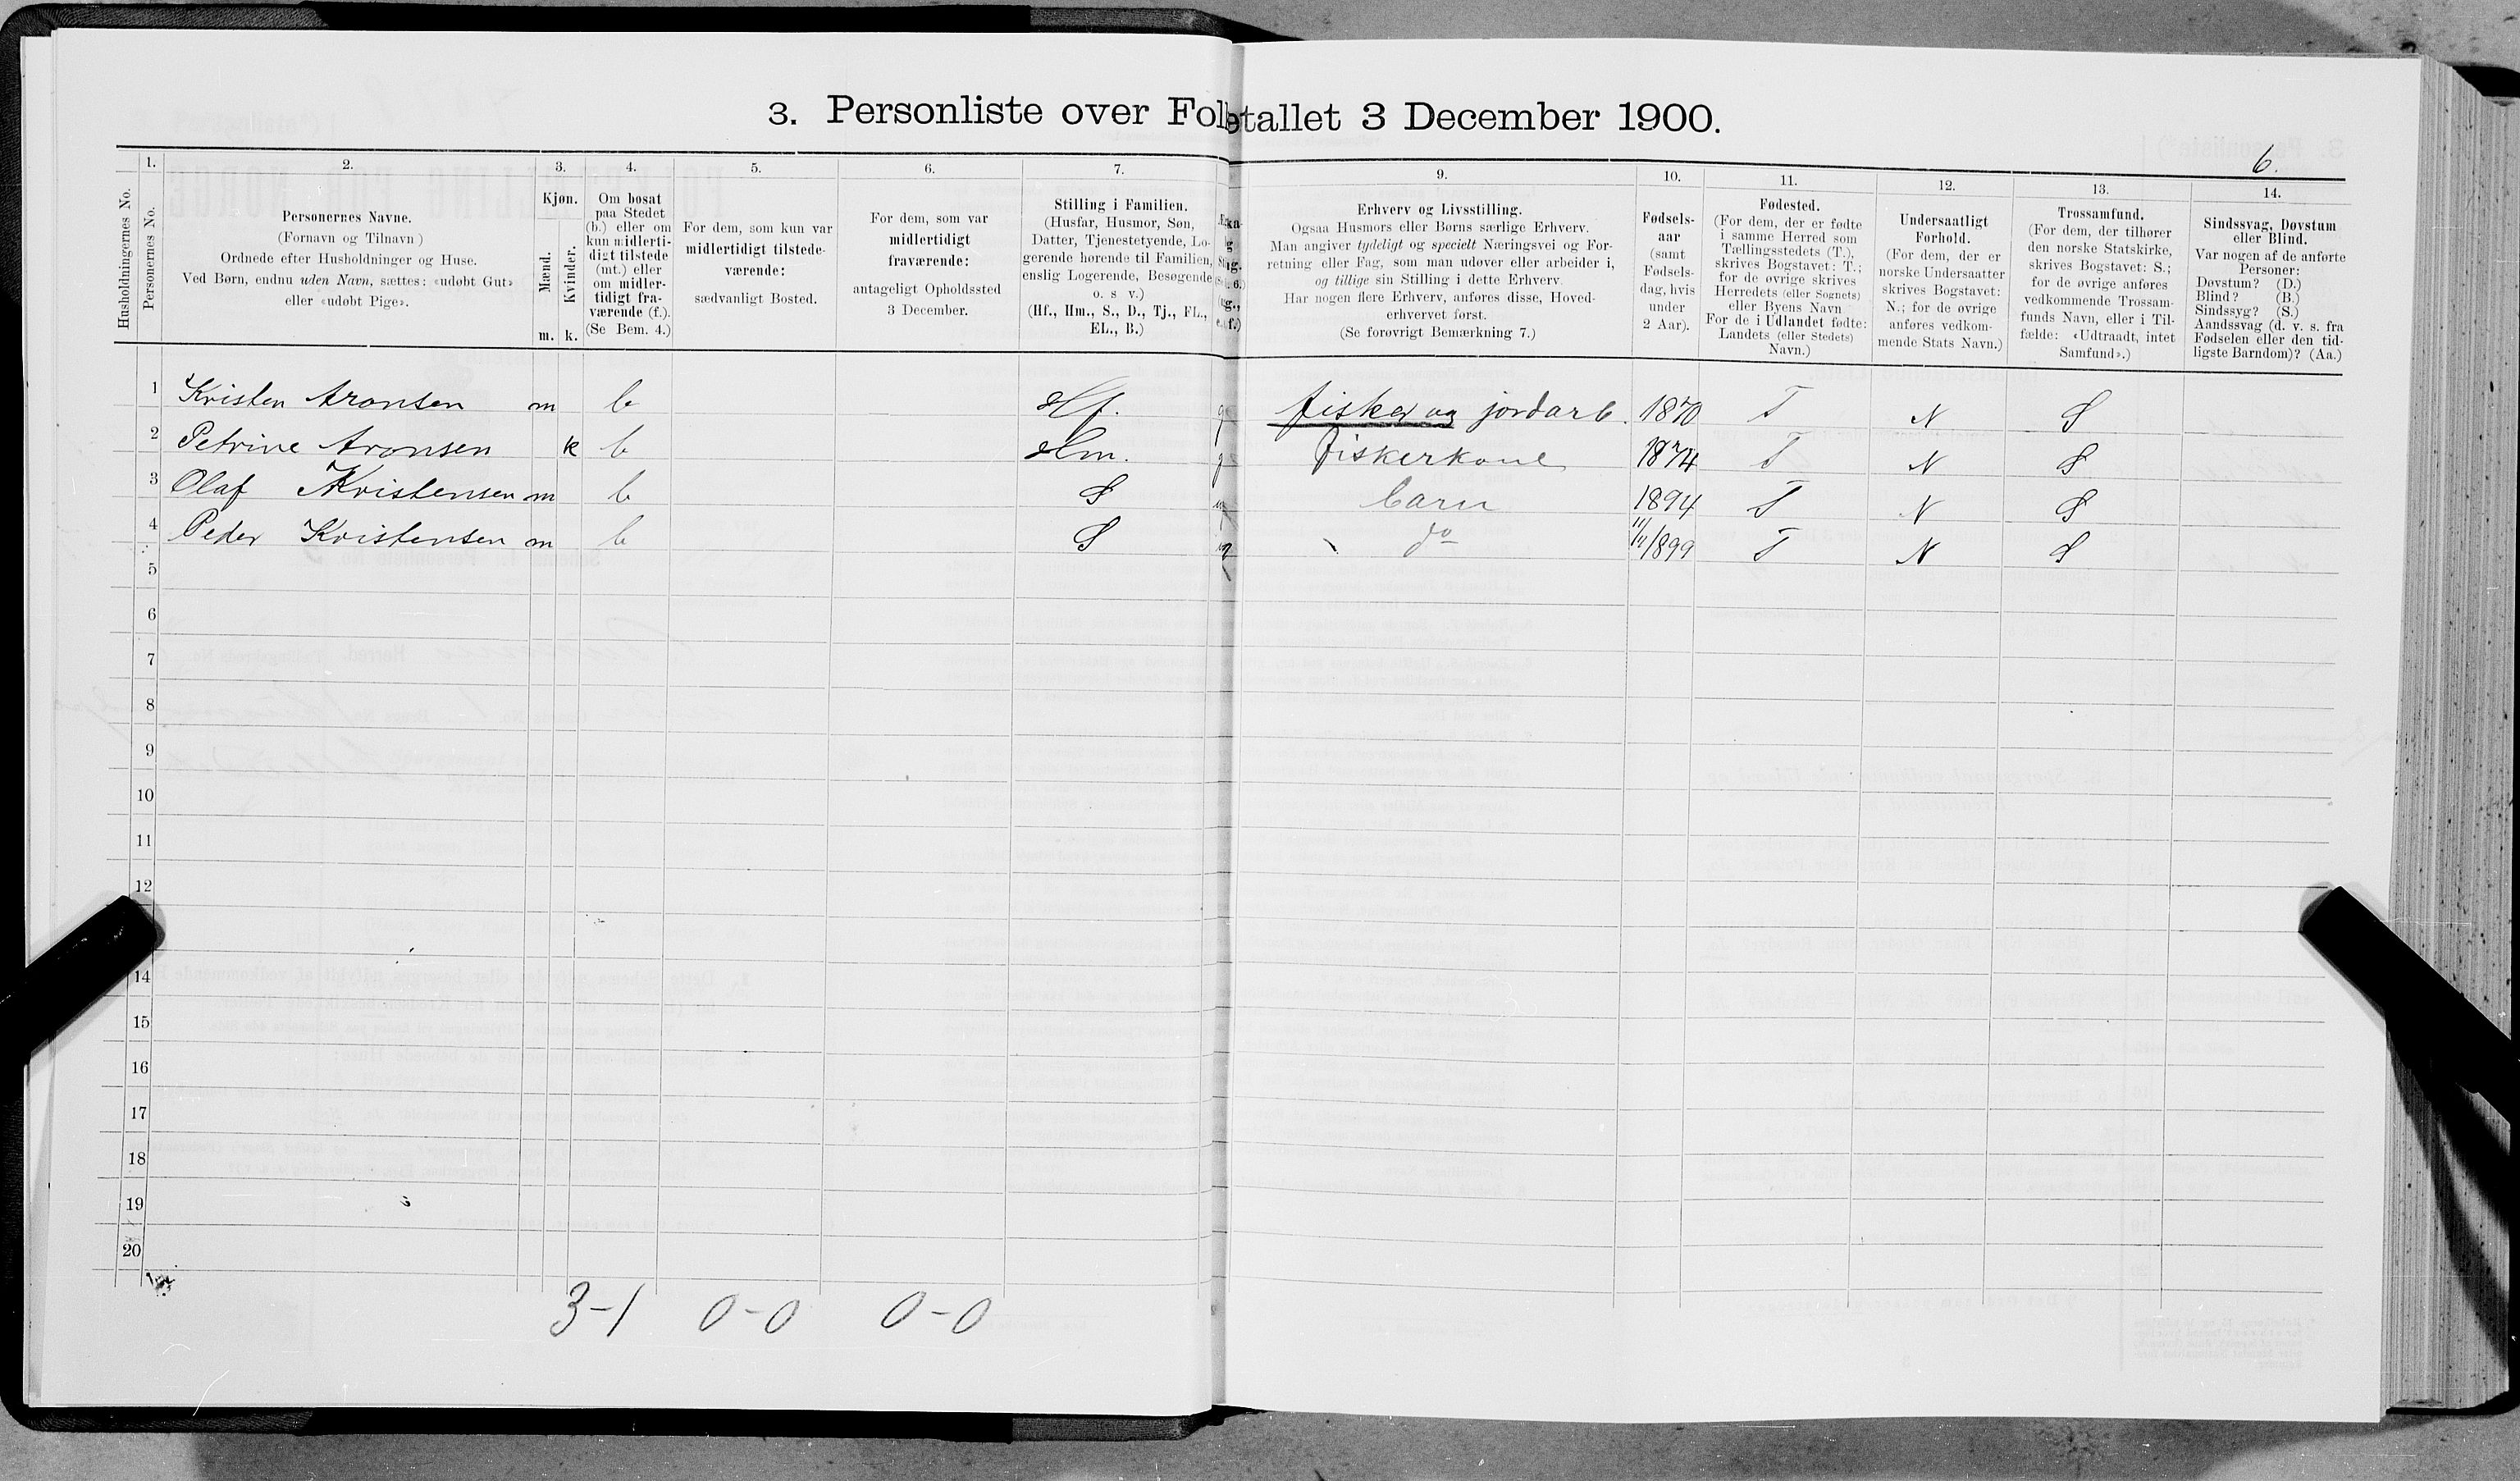 3. Personliste over Folketallet 3 December 1900.
6.
1. 2. 3. 4. 5. 6. 7. 9. 10. 11. 12. 13. 14.
Husholdningernes No.
Personernes No.
Personernes Navne.
(Fornavn og Tilnavn)
Ordnede efter Husholdninger og Huse.
Ved Børn, endnu uden Navn, sættes: «udøbt Gut»
eller «udøbt Pige».
Kjøn.
Mænd.
Kvinder.
m. k.
Om bosat
paa Stedet
(b.) eller om
kun midlerti-
digt tilstede
(mt.) eller
om midler-
tidigt fra-
værende (f.).
(Se Bem. 4.)
For dem, som kun var
midlertidigt tilstede-
værende:
sædvanligt Bosted.
For dem, som var
midlertidigt
fraværende:
antageligt Opholdssted
3 December.
Stilling i Familien.
(Husfar, Husmor, Søn,
Datter, Tjenestetyende, Lo-
gerende hørende til Familien,
enslig Logerende, Besøgende
o. s v.)
(Hf., Hm., S., D., Tj., FL.,
EL., B.)
Erhverv og Livsstilling.
Ogsaa Husmors eller Børns særlige Erhverv.
Man angiver tydeligt og specielt Næringsvei og For-
retning eller Fag, som man udøver eller arbeider i,
og tillige sin Stilling i dette Erhverv.
Har nogen flere Erhverv, anføres disse, Hoved-
erhvervet først.
(Se forøvrigt Bemærkning 7.)
Fødsels-
aar
(samt
Fødsels-
dag, hvis
under
2 Aar).
Fødested.
(For dem, der er fødte
i samme Herred som
Tællingsstedets (T.),
skrives Bogstavet: T.;
for de øvrige skrives
Herredets (eller Sognets)
eller Byens Navn
For de i Udlandet fødte:
Landets (eller Stedets)
Navn.)
Undersaatligt
Forhold.
(For dem, der er
norske Undersaatter
skrives Bogstavet:
N.; for de øvrige
anføres vedkom-
mende Stats Navn.)
Trossamfund.
(For dem, der tilhører
den norske Statskirke,
skrives Bogstavet: S.;
for de øvrige anføres
vedkommende Trossam-
funds Navn, eller i Til-
fælde: «Udtraadt, intet
Samfund».)
Sindssvag, Døvstum
eller Blind.
Var nogen af de anførte
Personer:
Døvstum? (D.)
Blind? (B.)
Sindssyg? (S.)
Aandssvag (d. v. s. fra
Fødselen eller den tid-
ligste Barndom)? (Aa.)
1 Kristen Aronsen m b Hf. g fisker og jordarb. 1870 T N S
2 Petrine Aronsen k b Hm. g fiskerkone 1874 T N S
3 Olaf Kristensen m b S barn 1894 T N S
4 Peder Kristensen m b S do 11/11/899 T N S
5
6
7
8
9
10
11
12
14
15
16
17
18
19
20
3-1 0-0 0-0